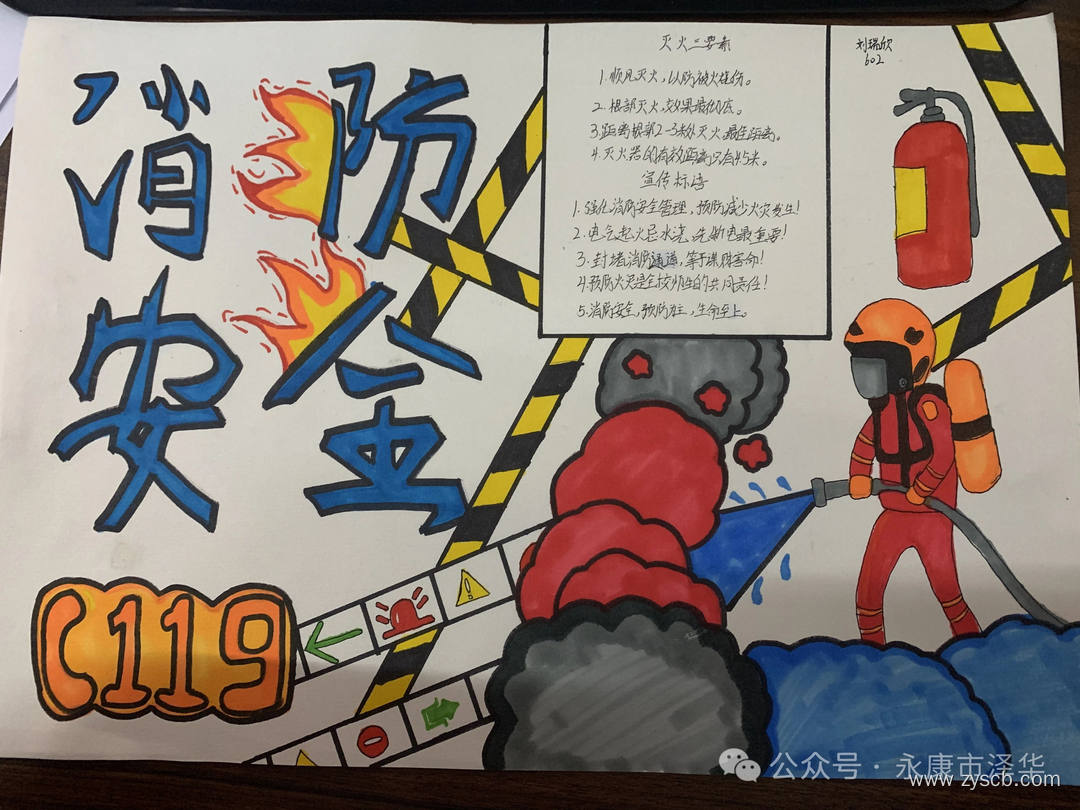 消防
安全
119
灭火三要素
1.顺风灭火,以防被火烧伤。
2.根部灭火,效果最彻底。
3.距离根部2-3米外灭火,最佳距离。
4.灭火器的有效距离只有4.5米。
宣传标语
1.强化消防安全管理,预防减少火灾发生!
2.电气起火忌水浇,先断电最重要!
3.封堵消防通道,等于谋财害命!
4.预防火灾是全校师生的共同责任!
5.消防安全,预防为主,生命至上。
刘瑞欣
602
公众号·永康市泽华
www.zyscb.com